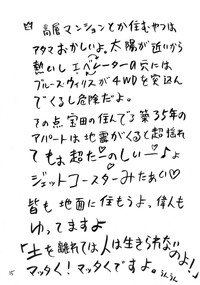 高層マンションとか住むやつは
アタマおかしいよ。太陽が近いから
熱いしエベレーターの穴には
ブルース・ウィリスが4WDを突込ん
でくるし危険だよ。
その点、宝田の住んでる築35年の
アパートは地震がくると超揺れ
てもお超たーのしいー♪♪
ジェットコースターみたあい♡
皆も地面に住もうよ、偉人も
ゆってますよ
「土を離れては人は生きられないのよ!」
マッタく!マッタくですよ。うんうん
15